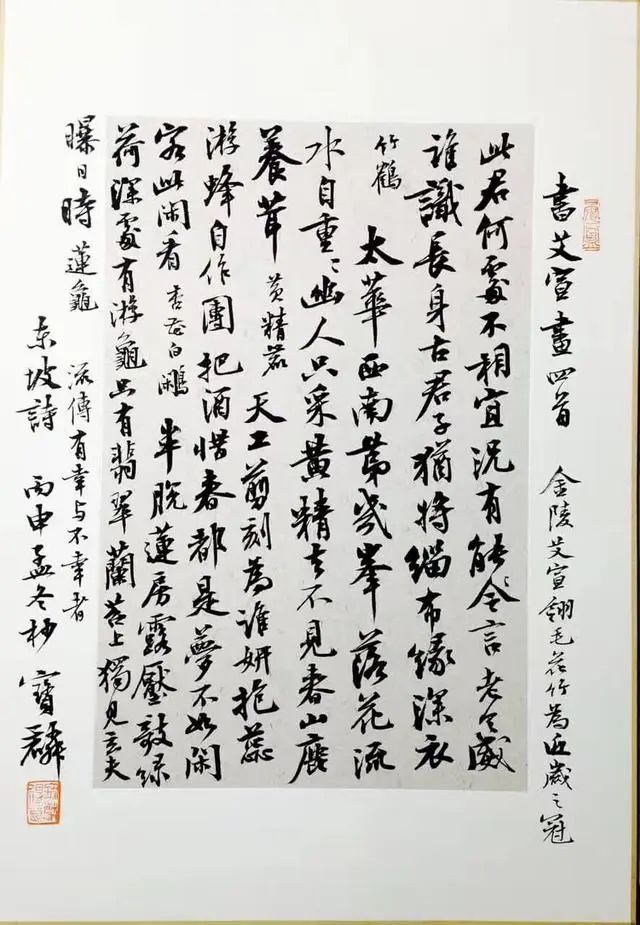 書艾宣畫四首 金陵艾宣翎毛花竹為近歲之冠
此君何處不相宜況有能言老令威
誰識長身古君子猶將緇布緣深衣
竹鶴 太華西南第幾峯落花流
水自重〻幽人只采黄精去不見春山鹿
養茸 黄精鹿 天工剪刻為誰妍抱蕊
游蜂自作團把酒惜春都是夢不如閑
客此閑看 杏花白鷴 半脫蓮房露壓敧綠
荷深處有游龜只有翡翠蘭苕上獨見玄夫
曝日時 蓮龜 流傳有幸与不幸者
东坡詩 丙申孟冬杪 寶麟